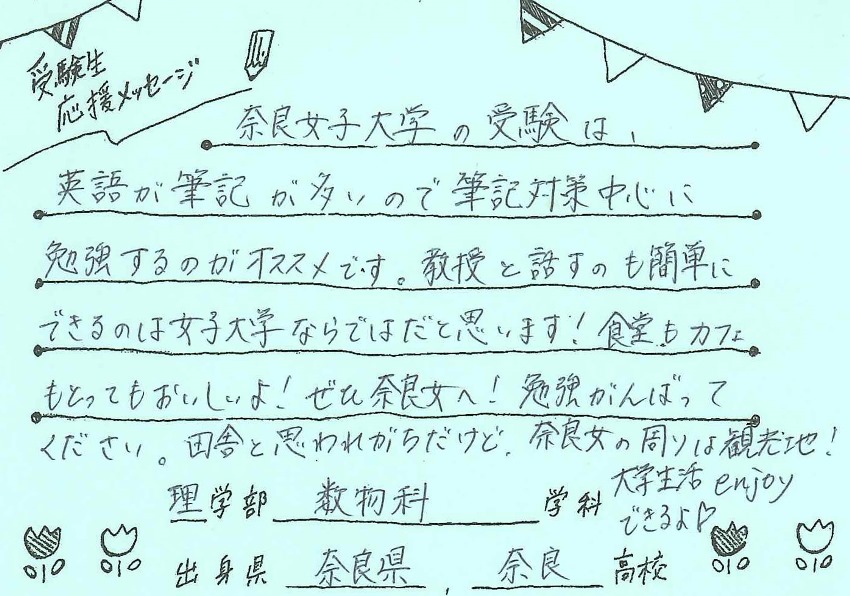 受験生
応援メッセージ
奈良女子大学の受験は、
英語が筆記が多いので筆記対策中心に
勉強するのがオススメです。教授と話すのも簡単に
できるのは女子大学ならではだと思います！食堂もカフェ
もとってもおいしいよ！ぜひ奈良女へ！勉強がんばって
ください。田舎と思われがちだけど、奈良女の周りは観光地！
大学生活enjoy
できるよ♡
理学部 数物科 学科
出身県 奈良県, 奈良 高校